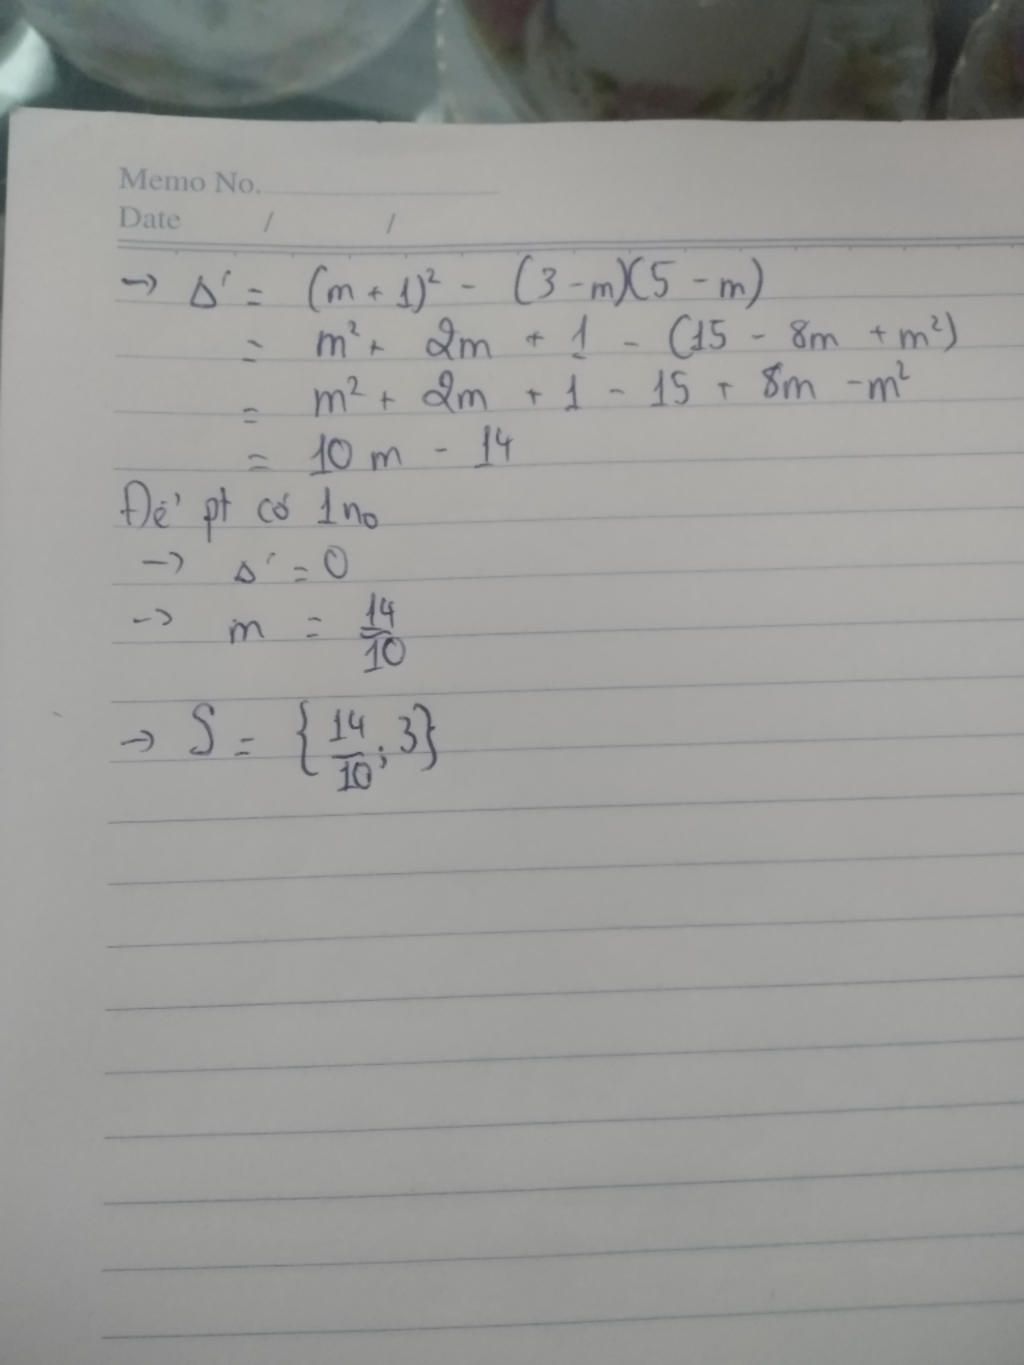 Memo No.
Date / /
→ Δ' = (m + 1)² - (3 - m)(5 - m)
= m² + 2m + 1 - (15 - 8m + m²)
= m² + 2m + 1 - 15 + 8m - m²
= 10 m - 14
Để pt có 1 no
→ Δ' = 0
→ m = 14/10
→ S = {14/10; 3}